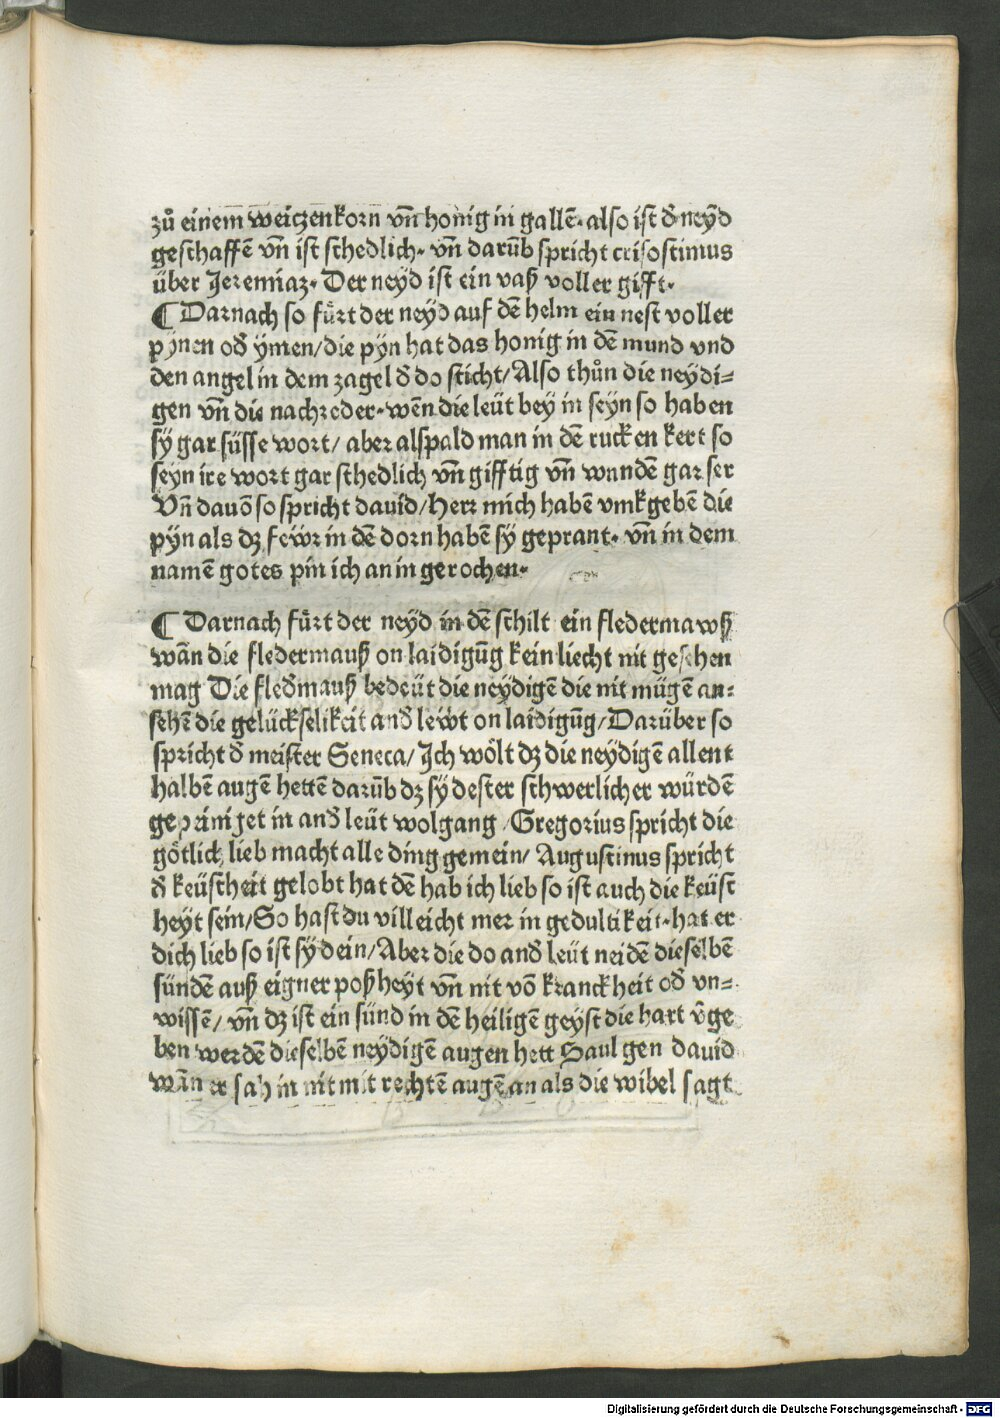 zů einem weiczenkorn vñ honig in gallē· also ist đ neyd
geschaffē vñ ist schedlich· vñ darūb spricht crisostimus
über Jeremiaz· Der neyd ist ein vaß voller gifft·
¶ Darnach so fürt der neyd auf dē helm ein nest voller
pynen ođ ymen/die pyn hat das honig in dē mund vnd
den angel in dem zagel đ do sticht/Also thůn die neydi=
gen vñ die nachreder·wēn die leüt bey in seyn so haben
sy gar süsse wort/ aber alspald man in dē rucken kert so
seyn ire wort gar schedlich vñ gifftig vñ wundē gar ser
Vñ dauō so spricht dauid/Herr mich habē vmkgebē die
pyn als dz fewr in dē dorn habē sy geprant· vñ in dem
namē gotes pin ich an in gerochen·
¶ Darnach fürt der neyd in dē schilt ein fledermawß
wān die fledermauß on laidigūg kein liecht nit gesehen
mag Die fleđmauß bedeüt die neydigē die nit mügē an=
sehē die gelückselikeit anđ lewt on laidigūg/Darüber so
spricht đ meister Seneca/Ich wölt dz die neydigē allent
halbē augē hettē darūb dz sy dester schwerlicher würdē
gepäiniget in anđ leüt wolgang/Gregorius spricht die
götlich lieb macht alle ding gemein/ Augustinus spricht
đ keüscheit gelobt hat dē hab ich lieb so ist auch die keüst
heyt sein/So hast du villeicht mer in gedultikeit·hat er
dich lieb so ist sy dein/Aber die do anđ leüt neidē dieselbē
sündē auß eigner poßheyt vñ nit vō kranckheit ođ vn=
wissē/ vñ dz ist ein sünd in dē heiligē geyst die hart v̄ge
ben werdē dieselbē neydigē augen hett Saul gen dauid
wān er sah in nit mit rechtē augē an als die wibel sagt
Digitalisierung gefördert durch die Deutsche Forschungsgemeinschaft - DFG